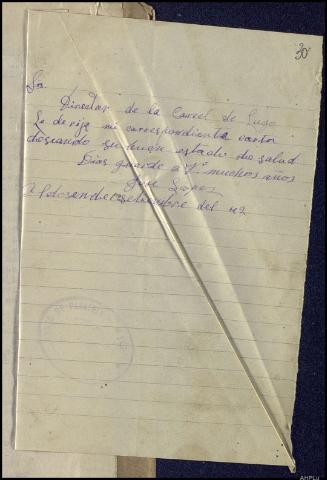 30
Sr.
Director de la Carcel de Lugo
Le dirijo mi correspondiente carta
deseando su buen estado de salud
Dios guarde a V. muchos años
Jose Lopez
setiembre del 42
AHPLu